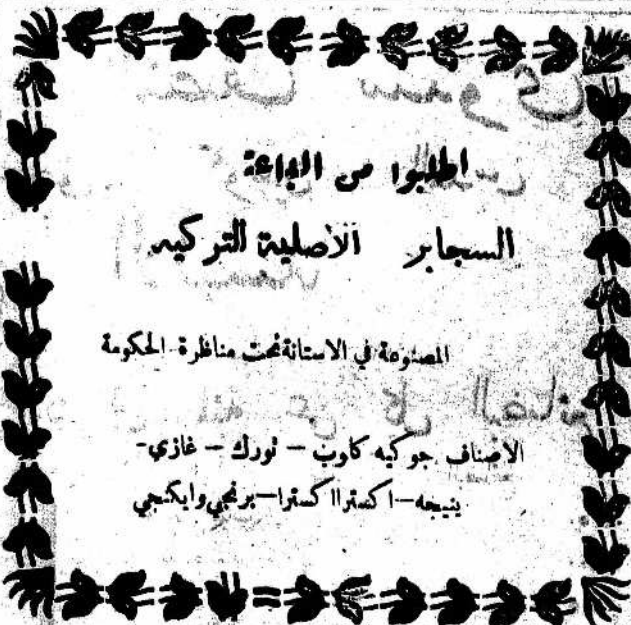 اطلبوا من الباعة
السجاير الأصلية التركيه
المصنوعة في الاستانة تحت مناظرة الحكومة
الاصناف جوكيه كلوب – تورك – غازي-
ينيجه–اكسترا اكسترا–برنجي وايكنجي